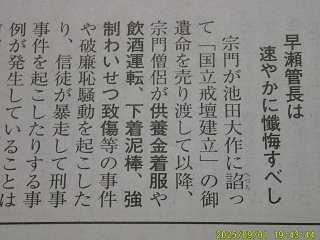 早瀬管長は
速やかに懺悔すべし
宗門が池田大作に諂っ
へつら
て「国立戒壇建立」の御
遺命を売り渡して以降、
宗門僧侶が供養金着服や
飲酒運転、下着泥棒、強
制わいせつ致傷等の事件
や破廉恥騒動を起こした
り、信徒が暴走して刑事
事件を起こしたりする事
例が発生していることは
2025/09/01 19:43:44